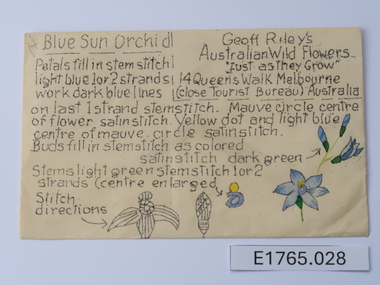 Blue Sun Orchid
Geoff Riley's
Australian Wild Flowers
"Just as they Grow"
14 Queens Walk Melbourne
(close Tourist Bureau) Australia
Petals fill in stem stitch
light blue 1 or 2 strands
work dark blue lines
on last 1 strand stemstitch. Mauve circle centre
of flower satinstitch. Yellow dot and light blue
centre of mauve circle satinstitch.
Buds fill in stemstitch as colored
satinstitch dark green
Stems light green stemstitch 1 or 2
strands (centre enlarged
Stitch
directions
E1765.028